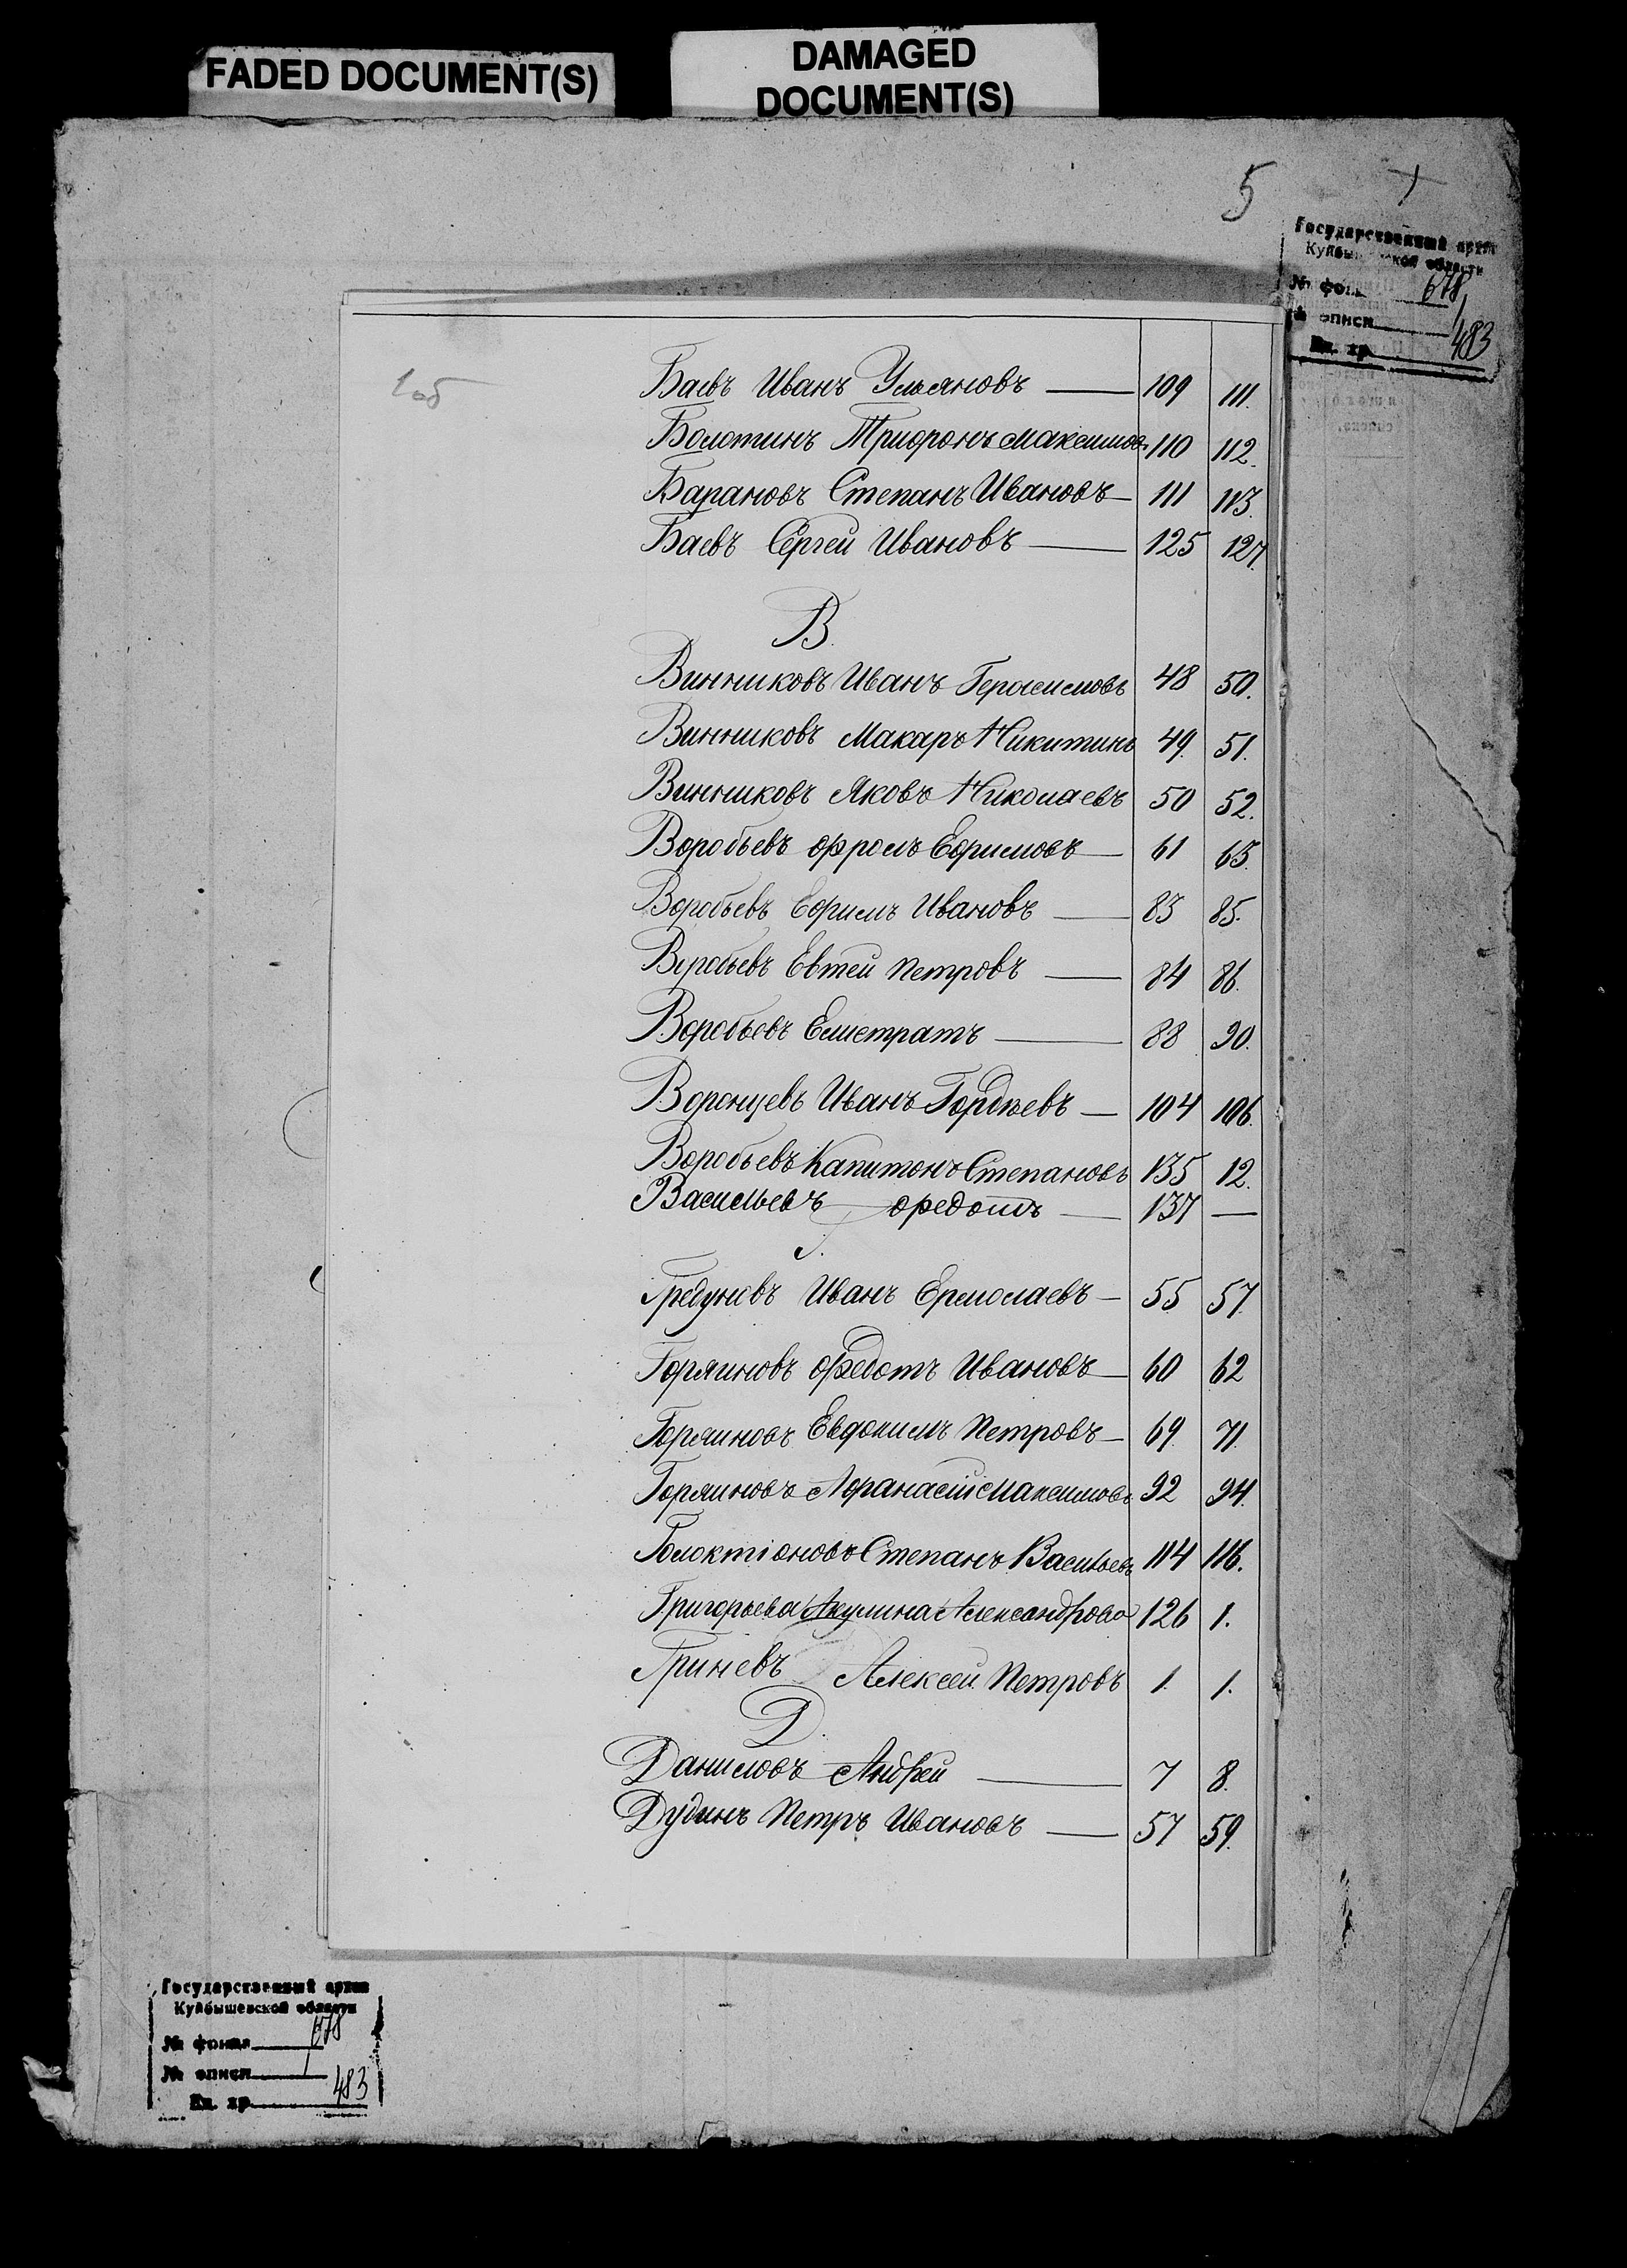 FADED DOCUMENT(S)
DAMAGED
DOCUMENT(S)
5
Государственный архив
Куйбышевской области
№ фонда 678
№ описи 1
Ед. хр. 483
1об
Баевъ Иванъ Ульяновъ — 109 111.
Болотинъ Трифонъ Максимовъ 110 112.
Барановъ Степанъ Ивановъ — 111 113.
Баевъ Сергей Ивановъ — 125 127.
В.
Винниковъ Иванъ Герасимовъ 48 50.
Винниковъ Макаръ Никитинъ 49. 51.
Винниковъ Яковъ Николаевъ 50 52.
Воробьевъ Фролъ Ефимовъ — 61 63.
Воробьевъ Ефимъ Ивановъ — 83 85.
Воробьевъ Евтей Петровъ — 84 86.
Воробьевъ Емистратъ — 88 90.
Воронцевъ Иванъ Гордѣевъ — 104 106.
Воробьевъ Капитонъ Степановъ 135 12.
Васильевъ Федотъ — 137 —
Г.
Гредуновъ Иванъ Ермолаевъ — 55 57.
Горяиновъ Федотъ Ивановъ — 60 62
Горяиновъ Евдокимъ Петровъ — 69. 71.
Горяиновъ Афанасій Максимовъ 92 94.
Голоктіоновъ Степанъ Васильевъ 114 116.
Григорьева Акулина Александрова 126 1.
Гриневъ Алексей Петровъ 1. 1.
Д.
Даниловъ Андрей — 7 8.
Дудинъ Петръ Ивановъ — 57 59.
Государственный архив
Куйбышевской области
№ фонда 678
№ описи 1
Ед. хр. 483